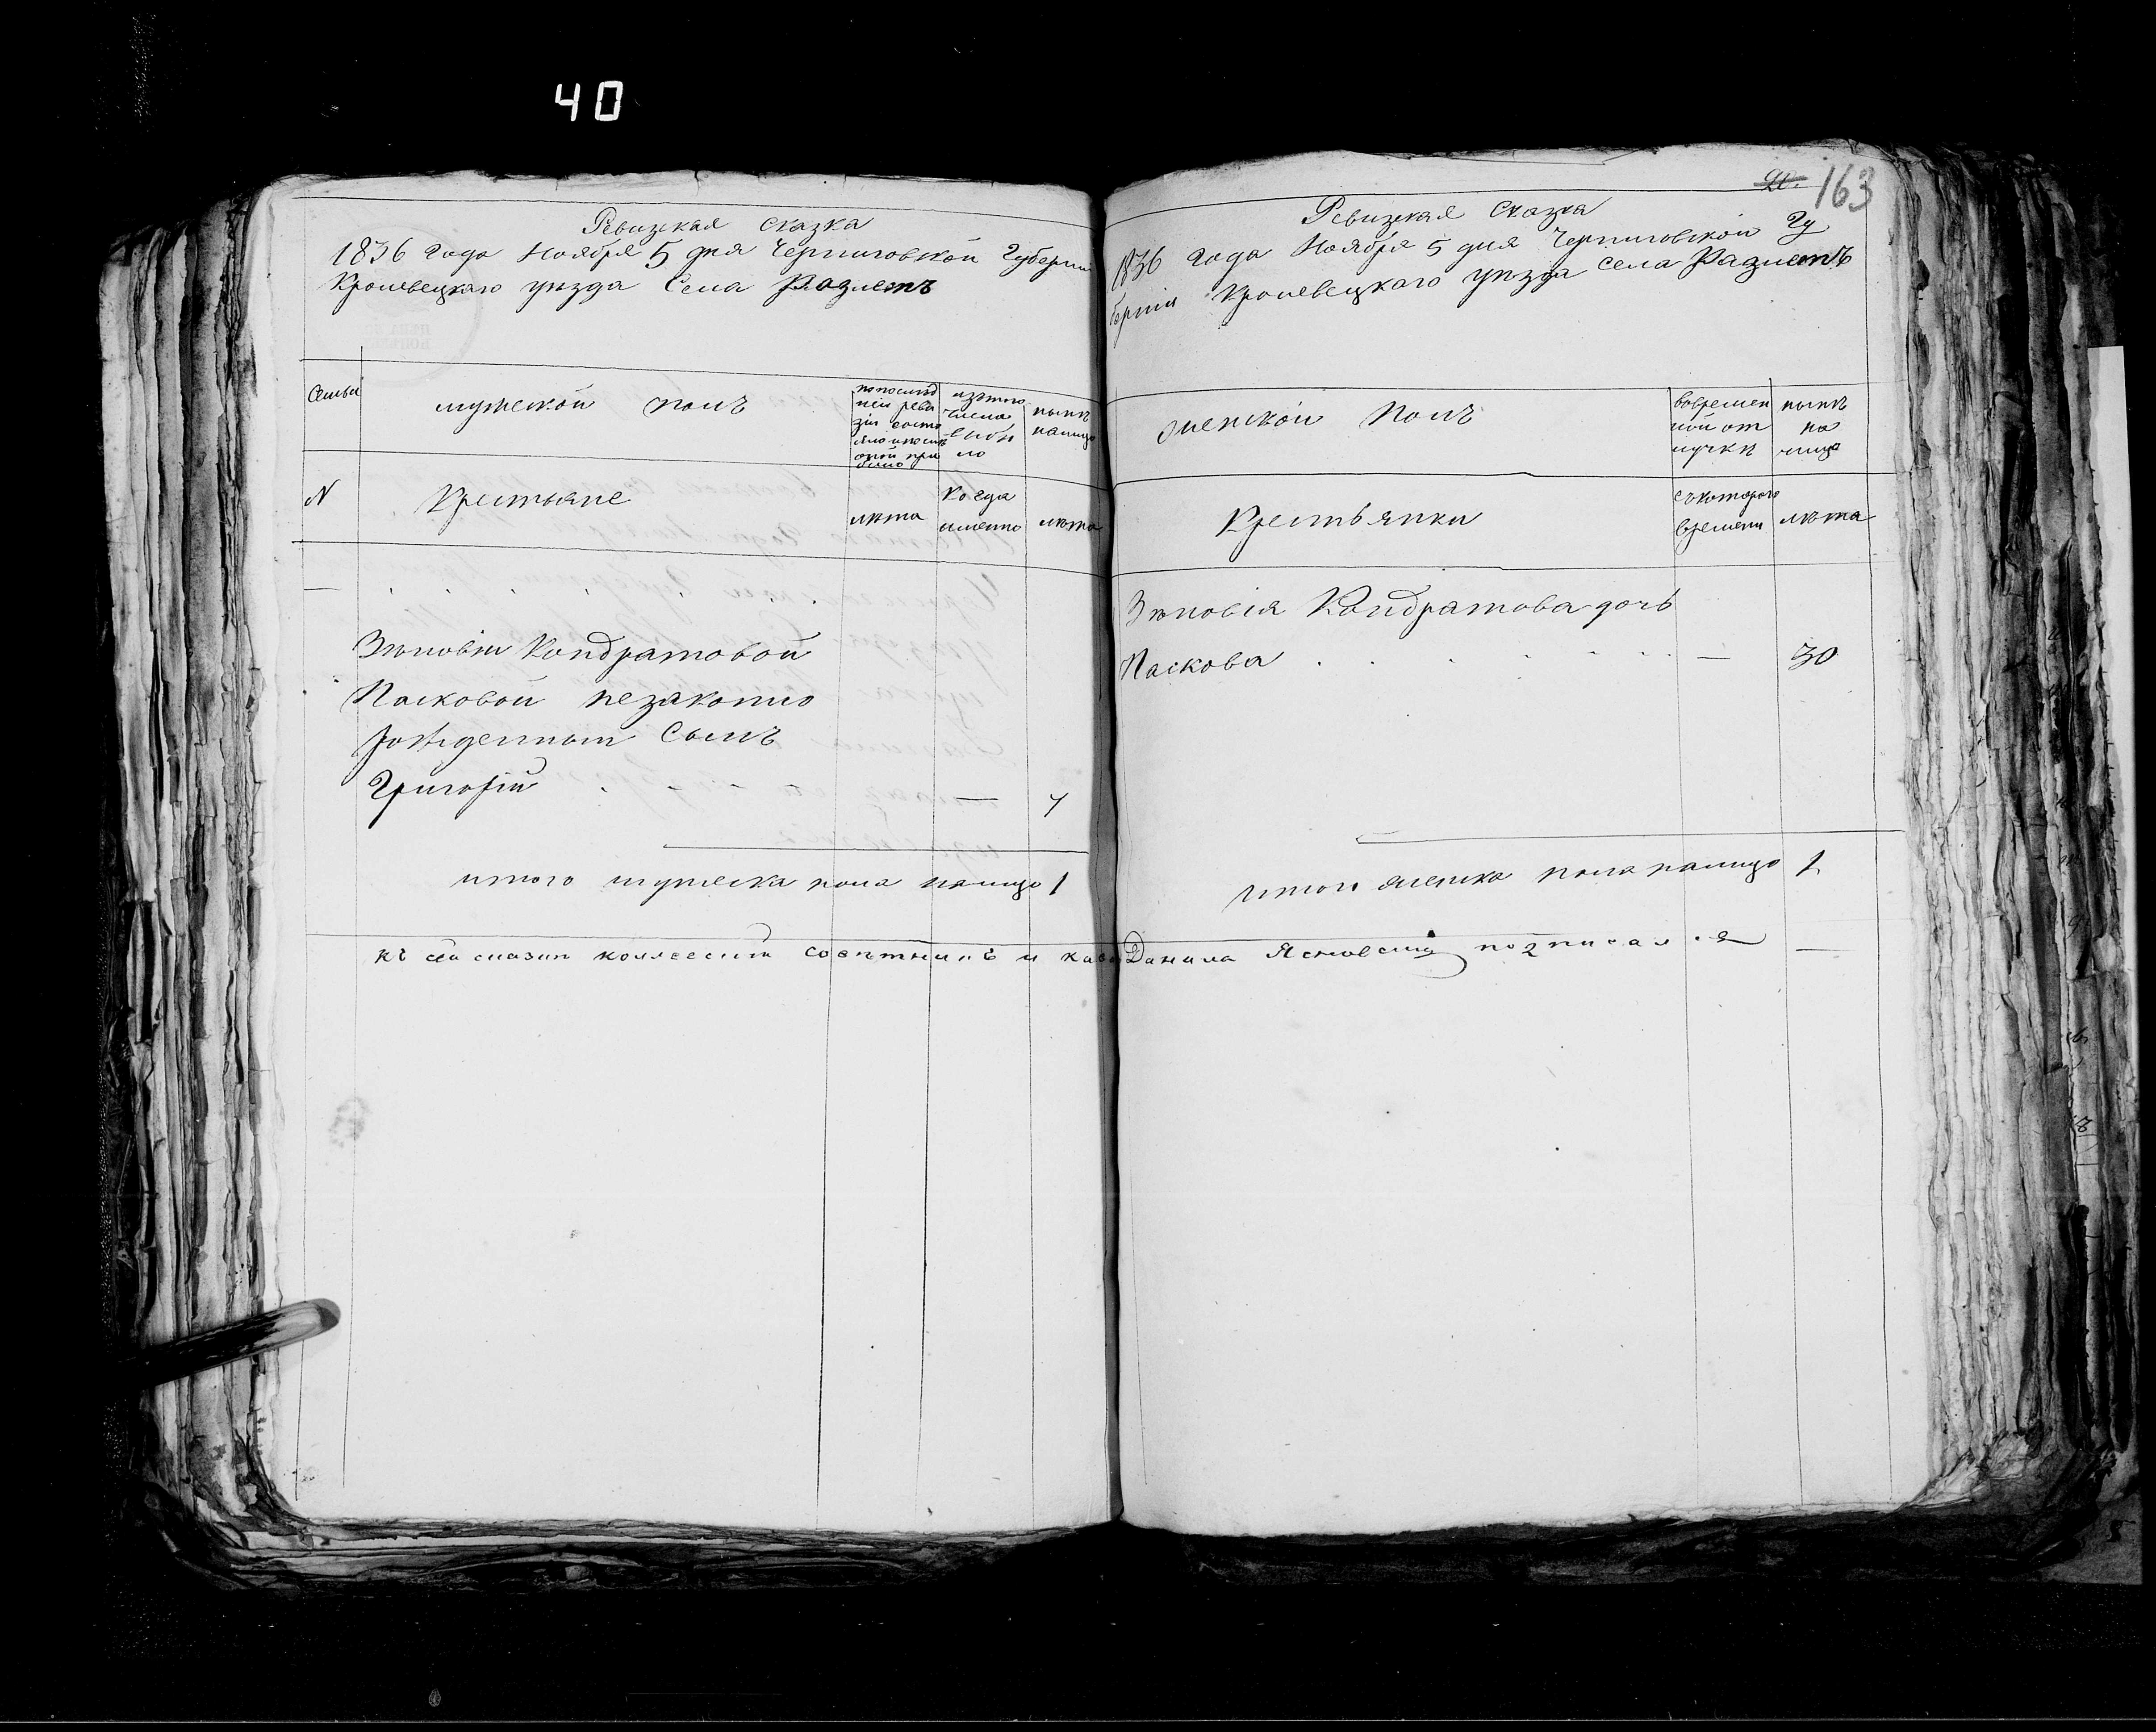 40
Ревизская сказка
1836 года Ноября 5 дня Черниговской Губернии
Кролевецкаго уѣзда Села Разлетъ
Семьи
мужеской полъ
по послѣд
ней реви
зіи состо
яло и послѣ
оной при
было
изтого
числа
выбы
ло
нынѣ
налицо
N
Крестьяне
лѣта
когда
именно
лѣта
Зѣновіи Кондратовой
Пасковой незаконно
рожденный Сынъ
Григорій — 7
итого мужеска пола налицо 1
20. 163
Ревизская Сказка
1836 года Ноября 5 дня Черниговской Гу
берніи Кролевецкаго уѣзда села Разлетъ
женской полъ
вовремен
ной от
лучкѣ
нынѣ
на
лицо
Крестьянки
съкотораго
времени
лѣта
Зѣновія Кондратова дочь
Паскова — 30
итого женска пола налицо 1
къ сей сказки коллеский совѣтникъ и кава Данила Ясновский подписался —